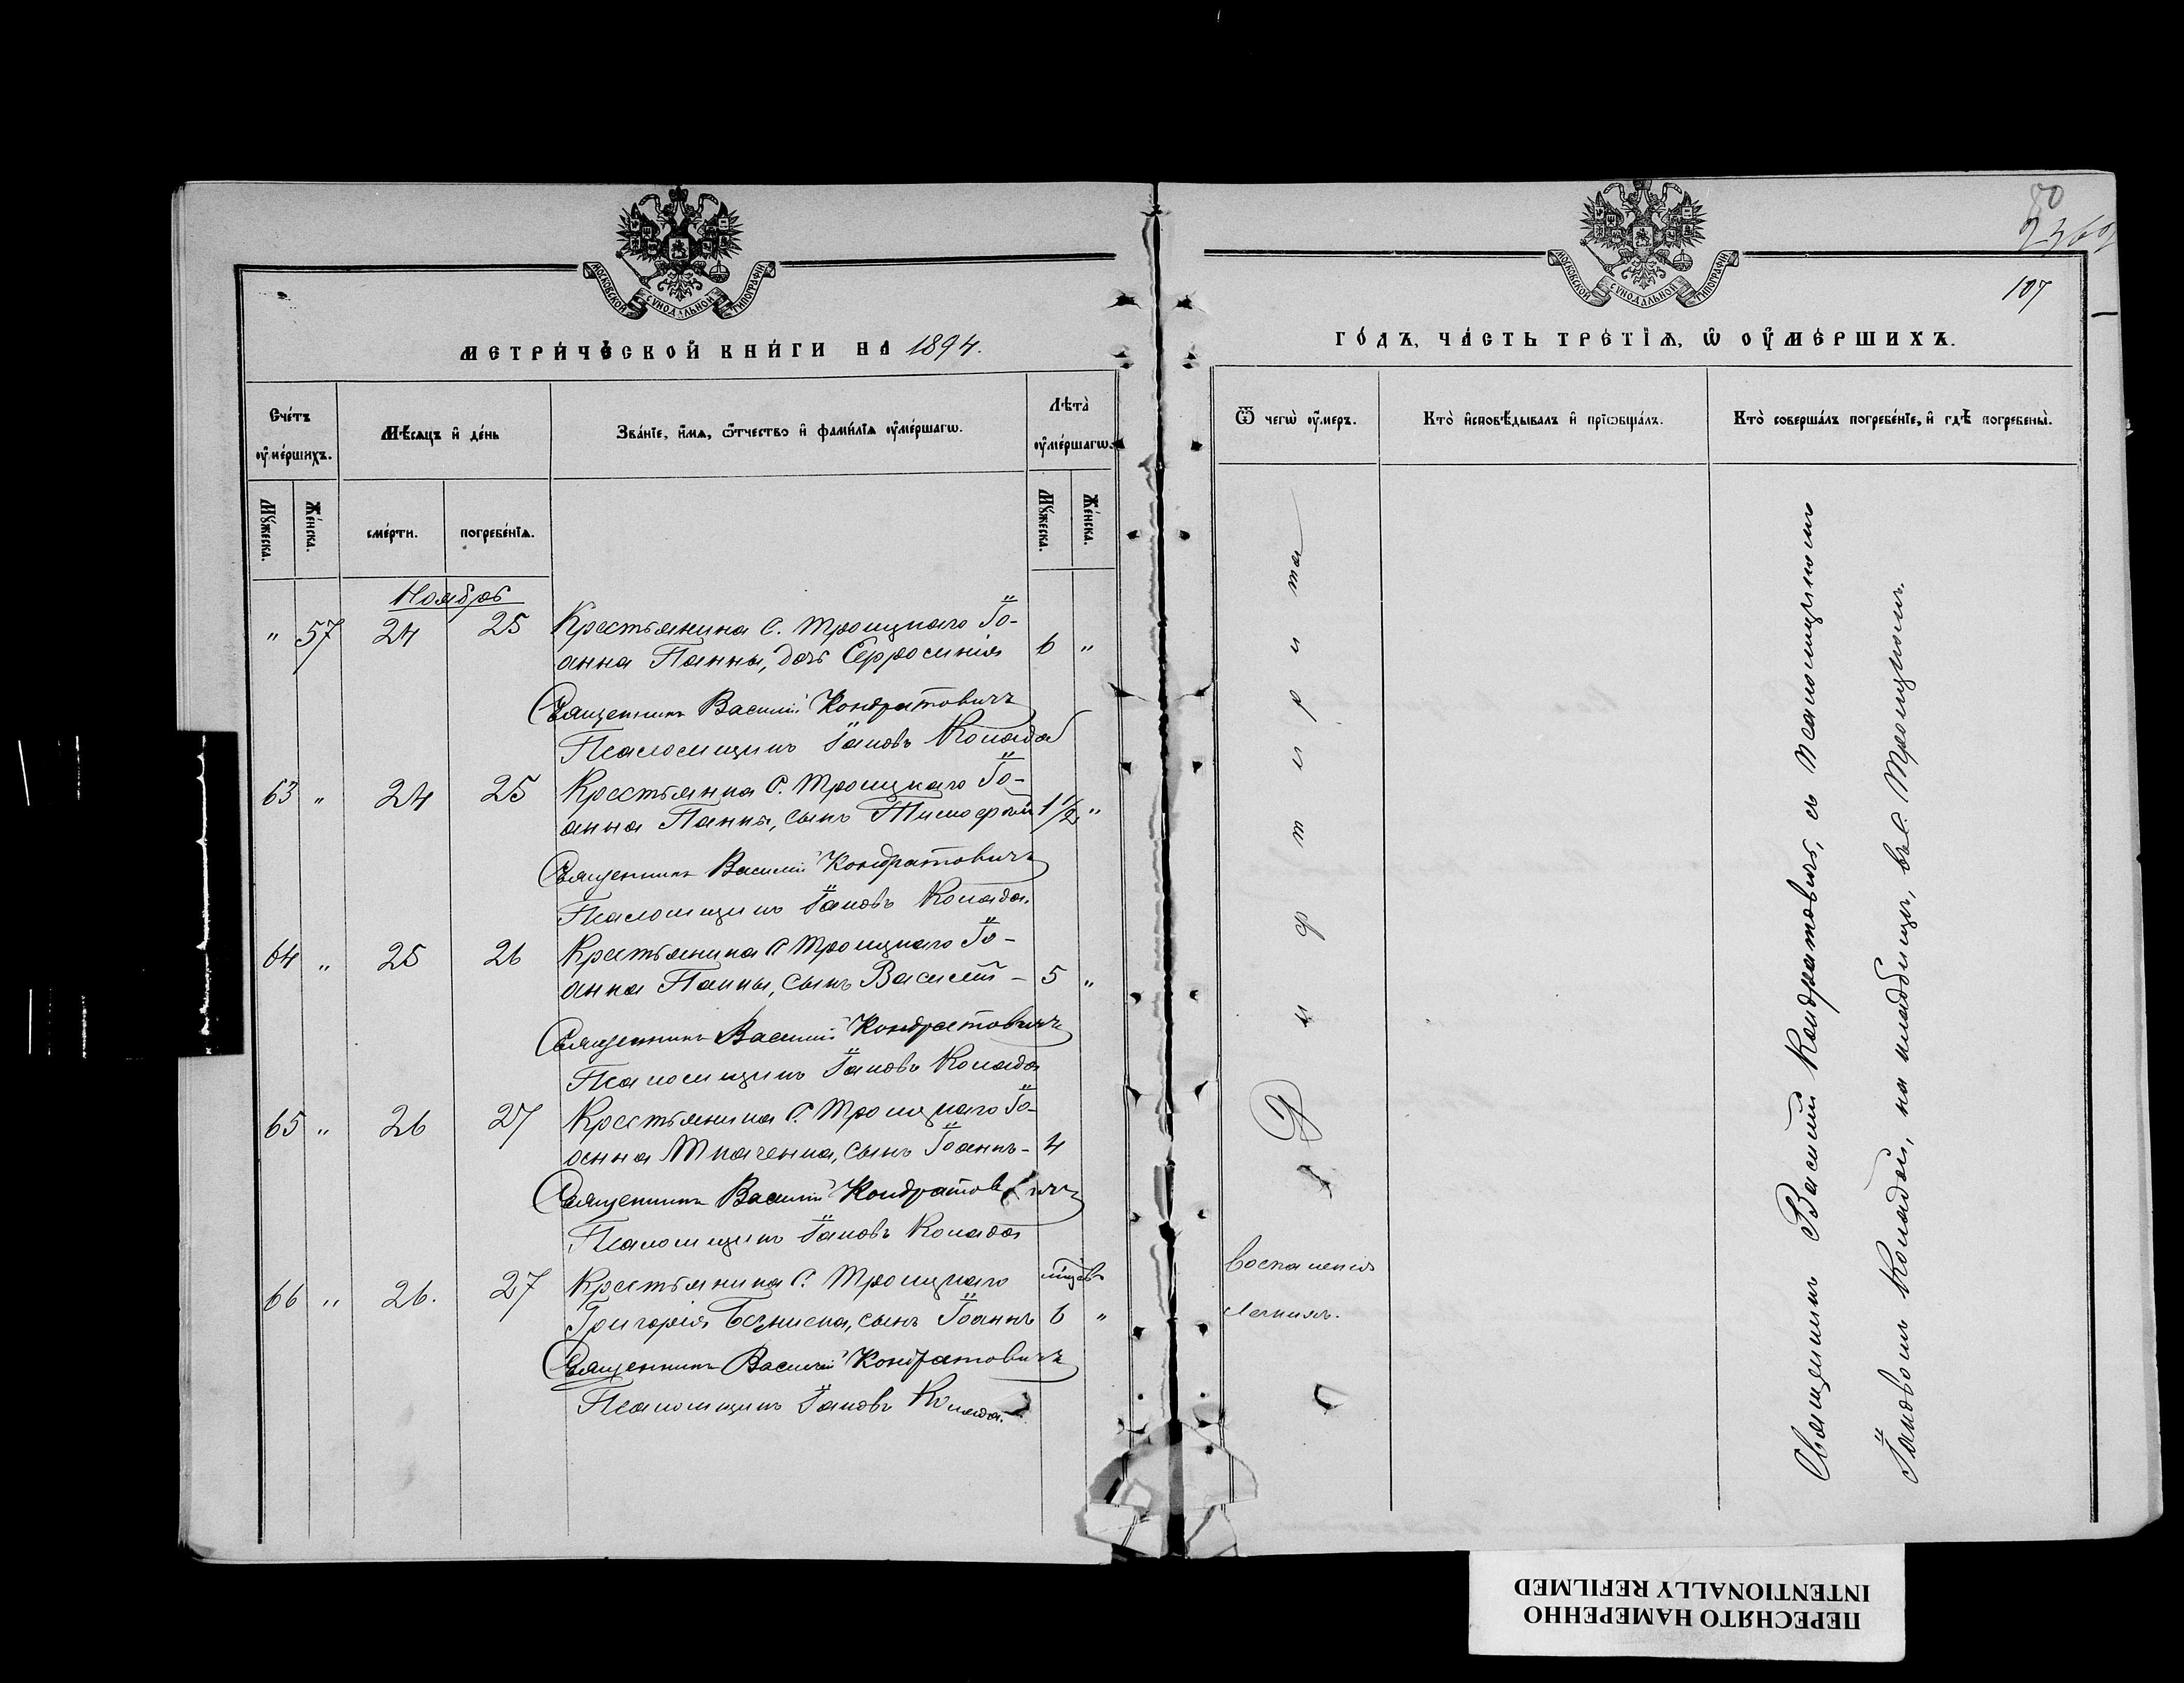 МОСКОВСКОЙ СѴНОДАЛЬНОЙ ТИПОГРАФІИ
МЕТРИ́ЧЕСКОЙ КНИ́ГИ НА 1894.
Сче́тъ ᲂу҆ме́ршихъ.
Мѣ́сяцъ и҆ де́нь
Зва́нїе, и҆́мѧ, ѻ҆́тчество и҆ фами́лїѧ ᲂу҆ме́ршагѡ.
Лѣта̀ ᲂу҆ме́ршагѡ.
Мꙋ́жеска.
Же́нска.
сме́рти.
погребе́нїѧ.
Мꙋ́жеска.
Же́нска.
Ноябрь
" 57 24 25 Крестьянина с. Троицкаго Іо-
анна Панны, дочь Ефросинія 6 "
Священникъ Василій Кондратовичъ
Псаломщикъ Іаковъ Колада
63 " 24 25 Крестьянина с. Троицкаго Іо-
анна Панны, сынъ Тимофей 1 1/2 "
Священникъ Василій Кондратовичъ
Псаломщикъ Іаковъ Колада.
64 " 25 26 Крестьянина с Троицкаго Іо-
анна Панны, сынъ Василій - 5 "
Священникъ Василій Кондратовичъ
Псаломщикъ Іаковъ Колада
65 " 26 27 Крестьянина с. Троицкаго Іо-
анна Ткаченка, сынъ Іоаннъ - 4
Священникъ Василій Кондратовичъ
Псаломщикъ Іаковъ Колада
66 " 26. 27 Крестьянина с. Троицкаго
Григорія сынъ Іоаннъ 6 "
Священникъ Василій Кондратовичъ
Псаломщикъ Іаковъ Колада.
80
107
МОСКОВСКОЙ СѴНОДАЛЬНОЙ ТИПОГРАФІИ
ГО́ДЪ, ЧА́СТЬ ТРЕ́ТЇѦ, Ѡ҆ ОУ҆МЕ́РШИХЪ.
Ѿ чегѡ̀ ᲂу҆́меръ.
Кто̀ и҆сповѣ́дывалъ и҆ прїѡбща́лъ.
Кто̀ соверша́лъ погребе́нїе, и҆ гдѣ̀ погребены̀.
Дифтирита
воспаленія
легкихъ.
Священникъ Василій Кондратовичъ, съ псаломщикомъ
Іаковомъ Коладой, на кладбищѣ, въ с. Троицкомъ.
ПЕРЕСНЯТО НАМЕРЕННО
INTENTIONALLY REFILMED